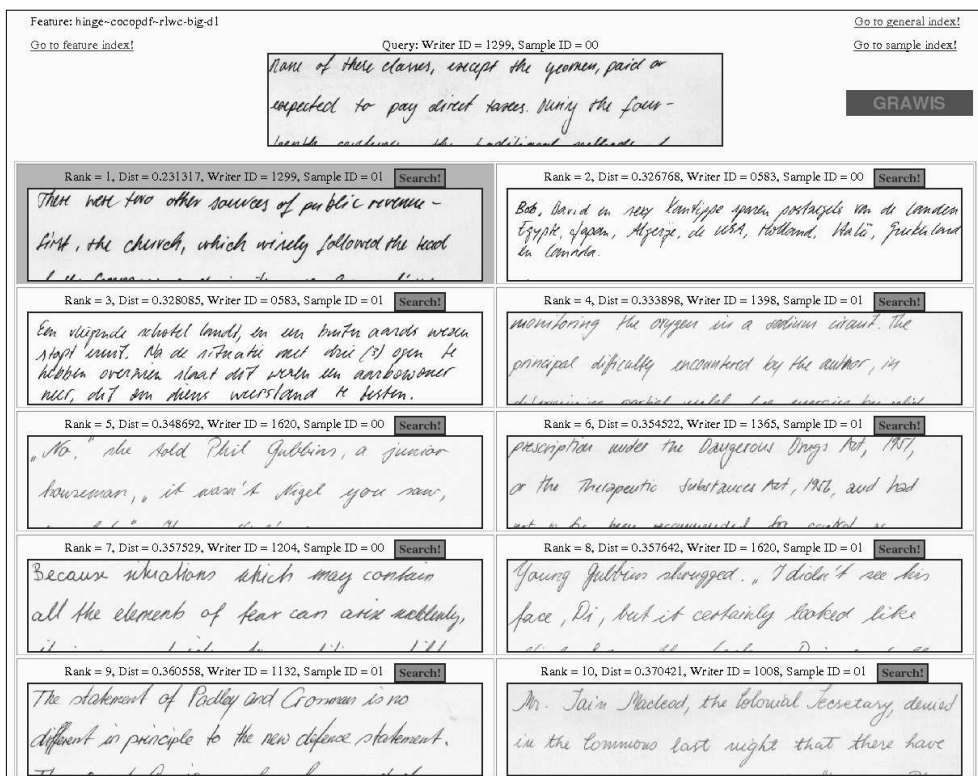 Feature: hinge~cocopdf~rlwc-big-d1
Go to general index!
Go to feature index!
Query: Writer ID = 1299, Sample ID = 00
Go to sample index!
None of these classes, except the yeomen, paid or
expected to pay direct taxes. During the four-
the traditional methods of
GRAWIS
Rank = 1, Dist = 0.231317, Writer ID = 1299, Sample ID = 01 Search!
There were two other sources of public revenue -
first, the church, which wisely followed the lead
Rank = 2, Dist = 0.326768, Writer ID = 0583, Sample ID = 00 Search!
Bob, David en sexy Xantippe sparen postzegels van de landen
Egypte, Japan, Algerije, de USA, Holland, Italië, Griekenland
en Canada.
Rank = 3, Dist = 0.328085, Writer ID = 0583, Sample ID = 01 Search!
Een vliegende schotel landt, en een buiten aards wezen
stapt eruit. Na de situatie met drie (3) ogen te
hebben overzien slaat dit wezen een aardbewoner
neer, dit om diens weerstand te testen.
Rank = 4, Dist = 0.333898, Writer ID = 1398, Sample ID = 01 Search!
monitoring the oxygen in a sodium circuit. The
principal difficulty encountered by the author, in
Rank = 5, Dist = 0.348692, Writer ID = 1620, Sample ID = 00 Search!
„No," she told Phil Gubbins, a junior
houseman, „it wasn't Nigel you saw,
Rank = 6, Dist = 0.354522, Writer ID = 1365, Sample ID = 01 Search!
prescription under the Dangerous Drugs Act, 1951,
or the Therapeutic Substances Act, 1956, and had
Rank = 7, Dist = 0.357529, Writer ID = 1204, Sample ID = 00 Search!
Because situations which may contain
all the elements of fear can arise suddenly,
Rank = 8, Dist = 0.357642, Writer ID = 1620, Sample ID = 01 Search!
Young Gubbins shrugged. „I didn't see his
face, Di, but it certainly looked like
Rank = 9, Dist = 0.360558, Writer ID = 1132, Sample ID = 01 Search!
The statement of Padley and Crosman is no
different in principle to the new defence statement.
Rank = 10, Dist = 0.370421, Writer ID = 1008, Sample ID = 01 Search!
Mr. Iain Macleod, the Colonial Secretary, denied
in the Commons last night that there have